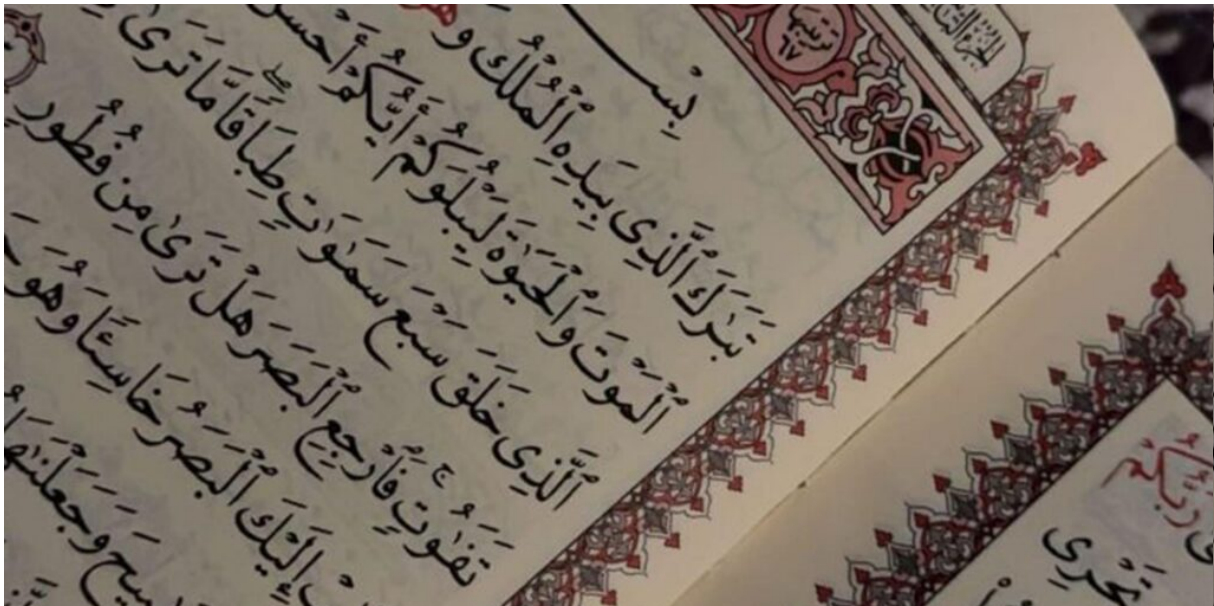 بِسْ
تَبَٰرَكَ ٱلَّذِى بِيَدِهِ ٱلْمُلْكُ وَ
ٱلْمَوْتَ وَٱلْحَيَوٰةَ لِيَبْلُوَكُمْ أَيُّكُمْ أَحْسَن
ٱلَّذِى خَلَقَ سَبْعَ سَمَٰوَٰتٍ طِبَاقًا ۖ مَّا تَرَىٰ
تَفَٰوُتٍ ۚ فَٱرْجِعِ ٱلْبَصَرَ هَلْ تَرَىٰ مِن فُطُورٍ
إِلَيْكَ ٱلْبَصَرُ خَاسِئًا وَهُوَ
وَجَعَلْنَٰهَا
رَبُّكُمْ
تَجْرِى